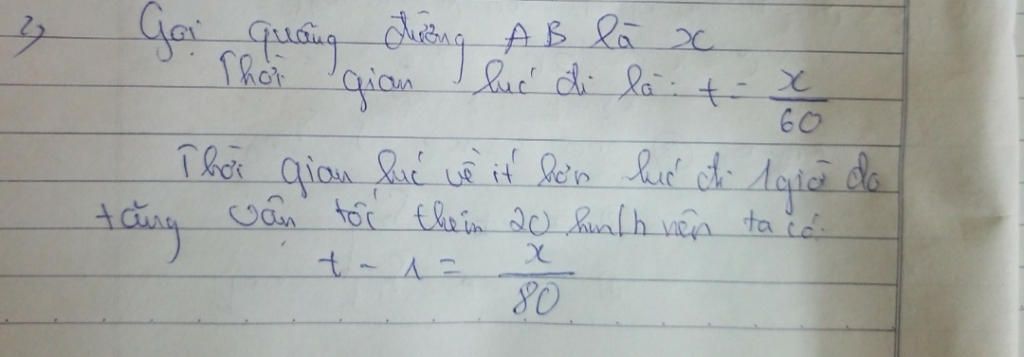 2, Gọi quãng đường AB là x
Thời gian lúc đi là: t = x/60
Thời gian lúc về ít hơn lúc đi 1 giờ do
tăng vận tốc thêm 20 km/h nên ta có:
t - 1 = x/80